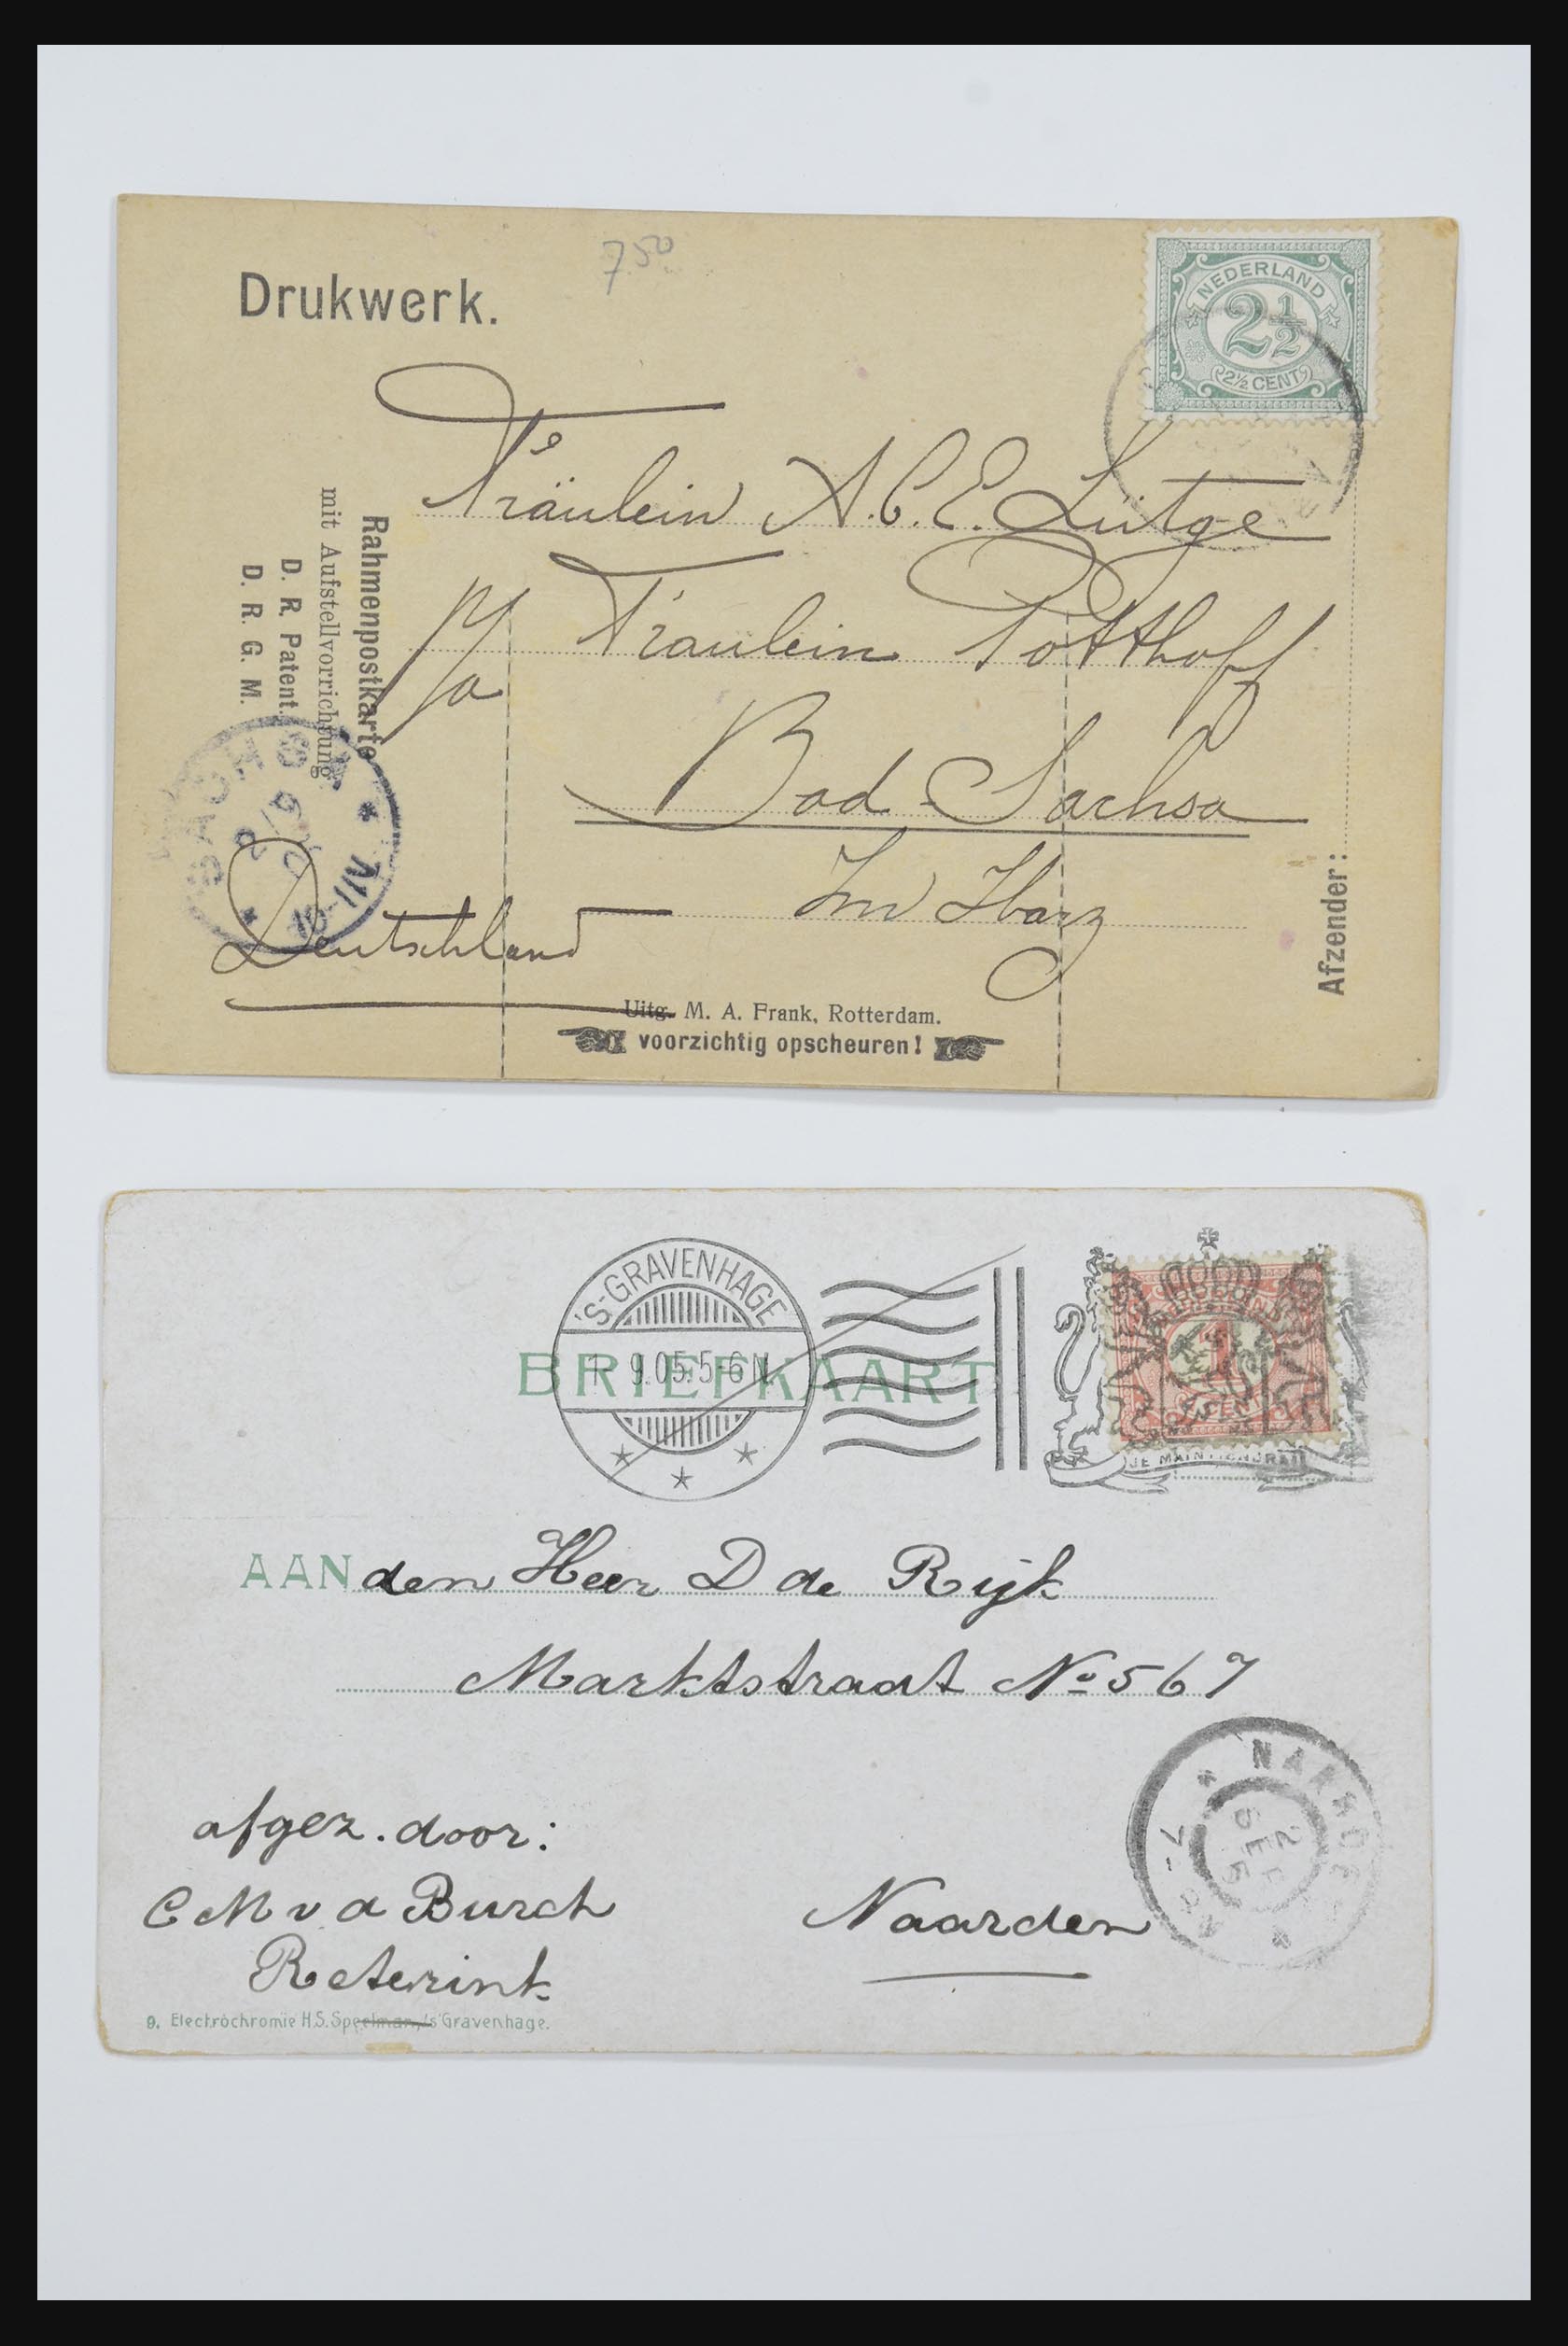 Drukwerk.
7 50
NEDERLAND
2 1/2
2½ CENT
Fräulein A. C. E. Lütge
p/a Fräulein Potthoff
Bad-Sachsa
Im Harz
Deutschland
Rahmenpostkarte
mit Aufstellvorrichtung.
D. R. Patent.
D. R. G. M.
SACHSA
Afzender:
Uitg. M. A. Frank, Rotterdam.
voorzichtig opscheuren!
'S-GRAVENHAGE
1- 9.05.5-6 N.
BRIEFKAART
1
CENT
JE MAINTIENDRAI
AAN den Heer D de Rijk
Marktstraat No 567
NAARDEN
2 SEP 5
afgez. door:
C M v d Burch
Reterink
Naarden
9. Electrochromie H.S. Speelman, 's Gravenhage.